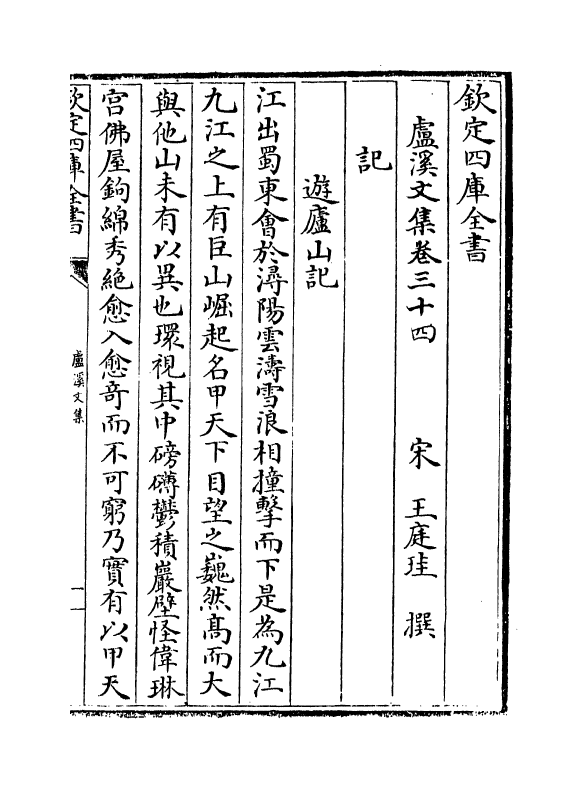 欽定四庫全書
盧溪文集卷三十四
宋 王庭珪 撰
記
遊廬山記
江出蜀東會於潯陽雲濤雪浪相撞擊而下是為九江
九江之上有巨山崛起名甲天下目望之巍然髙而大
與他山未有以異也環視其中磅礴鬱積巖壁怪偉琳
宫佛屋鉤綿秀絶愈入愈竒而不可窮乃實有以甲天
欽定四庫全書
盧溪文集
一